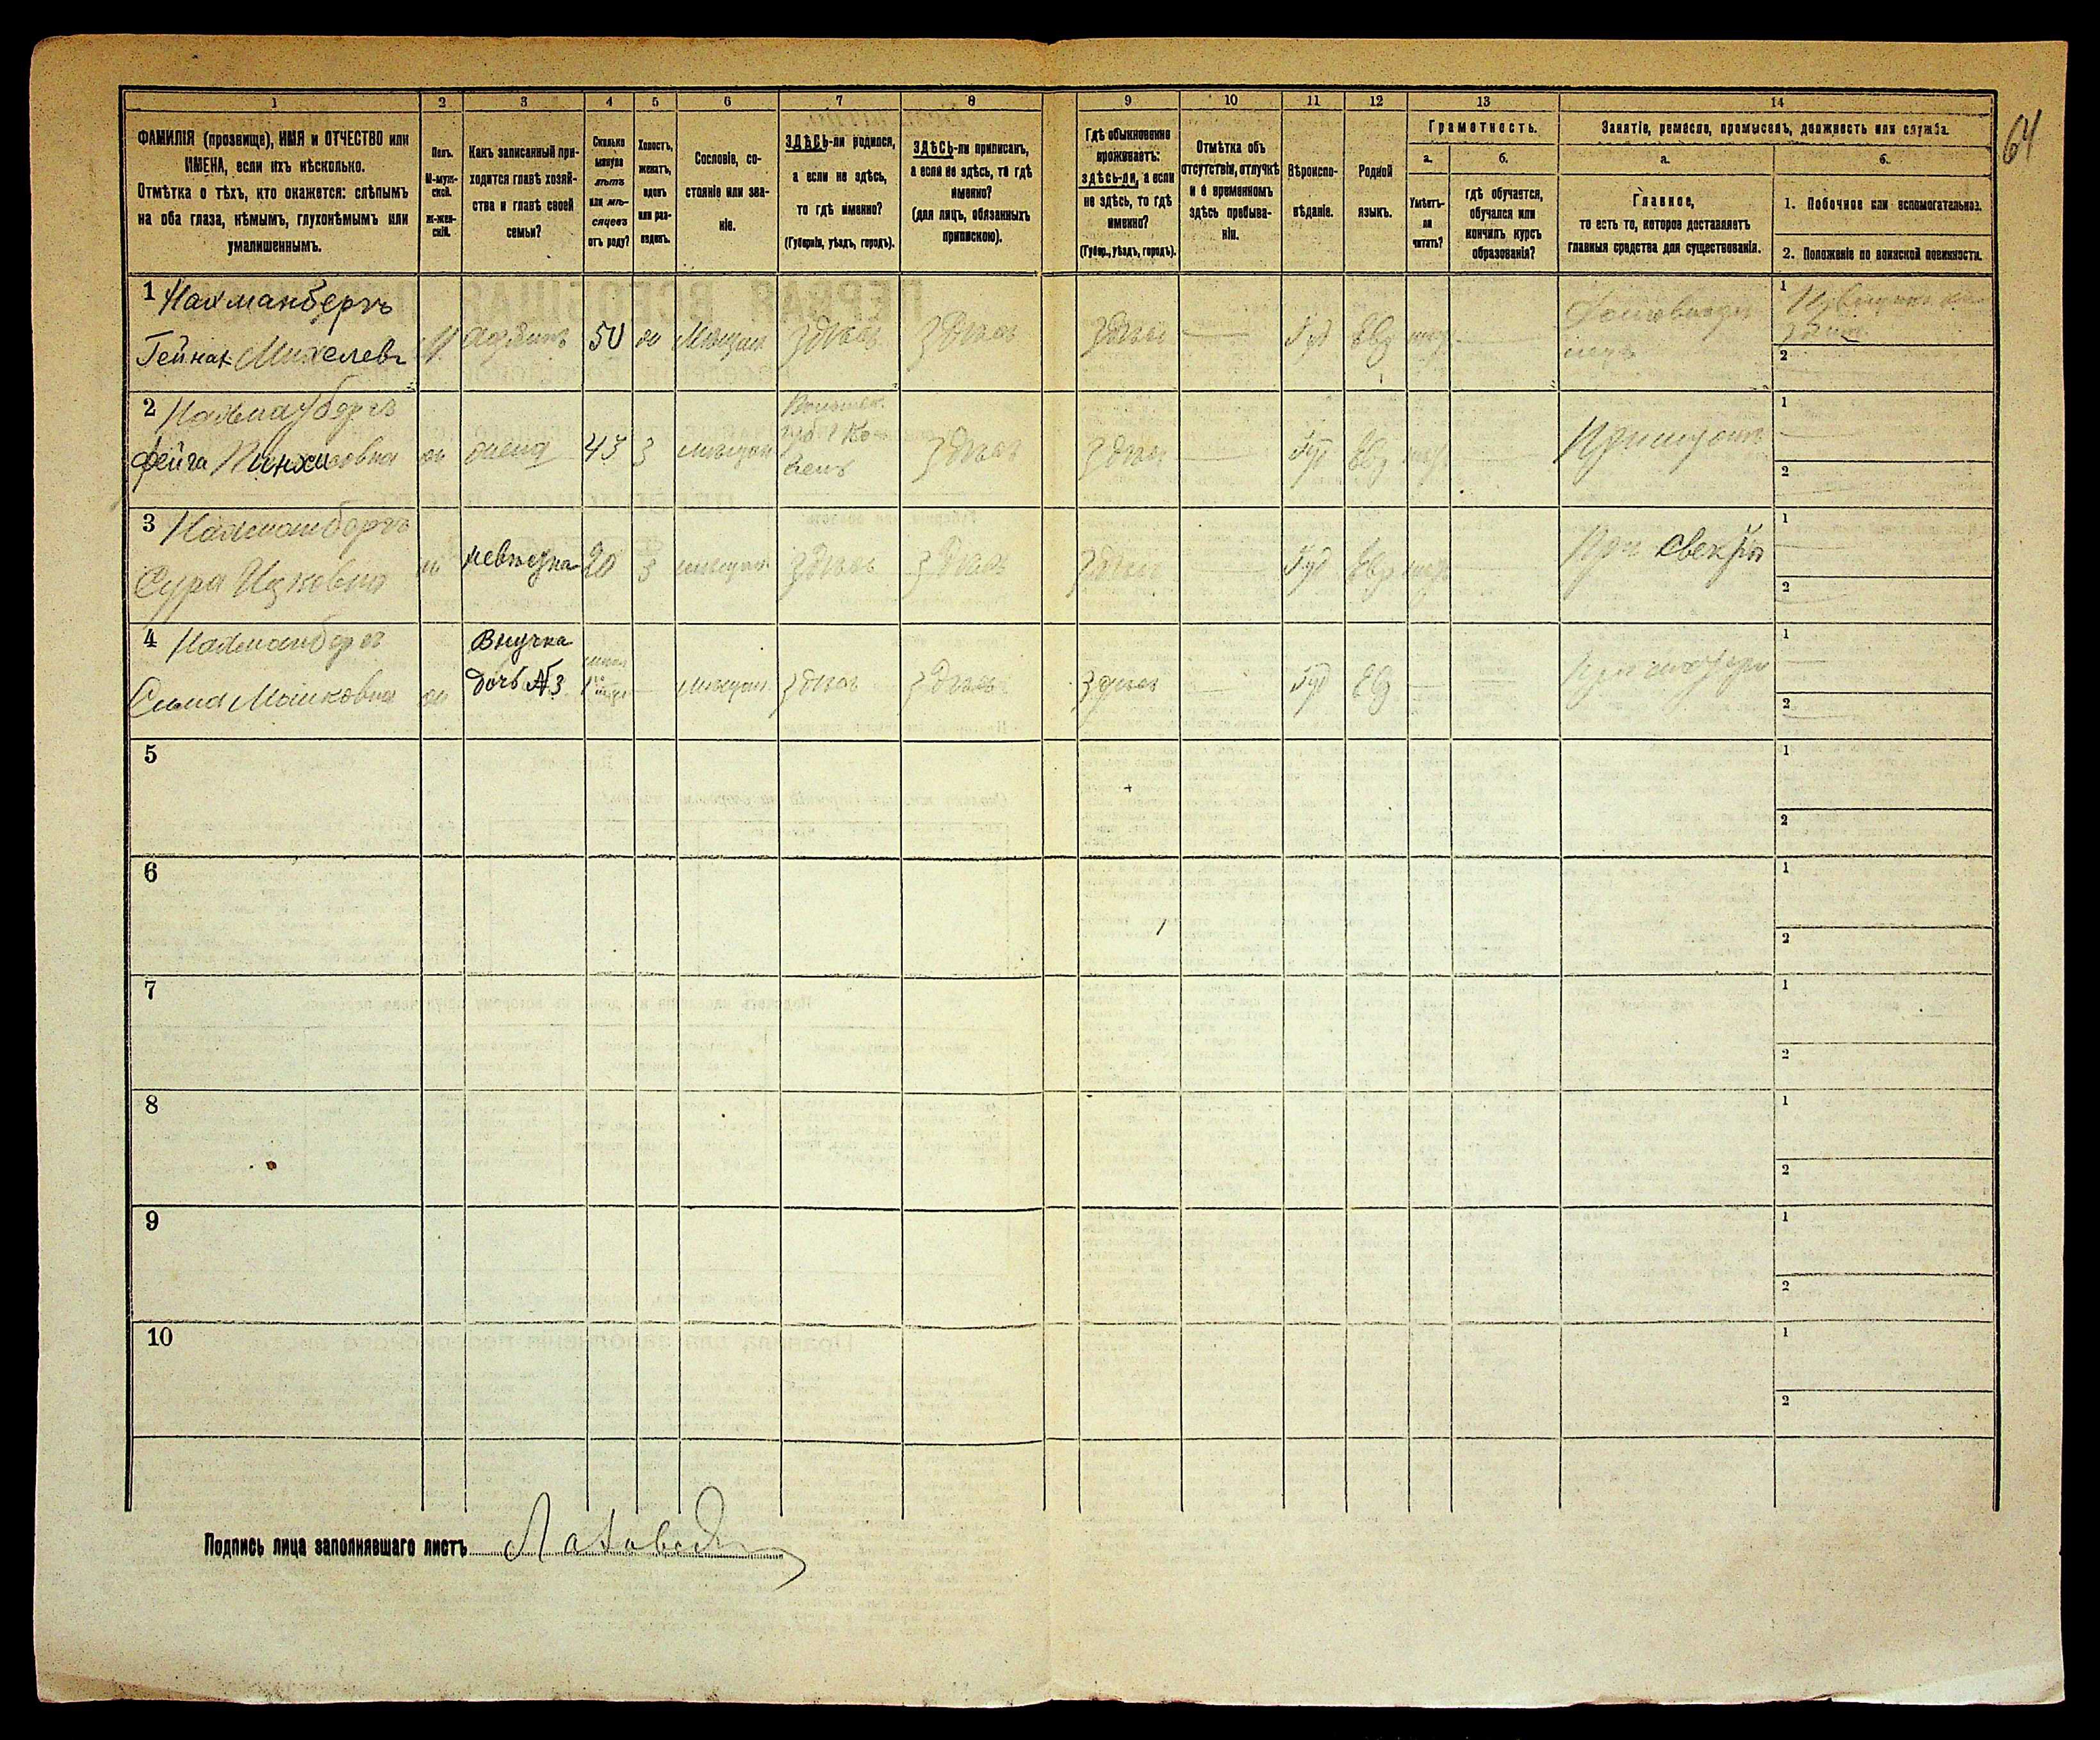 64
1 2 3 4 5 6 7 8 9 10 11 12 13 14
ФАМИЛІЯ (прозвище), ИМЯ и ОТЧЕСТВО или
ИМЕНА, если ихъ нѣсколько.
Отмѣтка о тѣхъ, кто окажется: слѣпымъ
на оба глаза, нѣмымъ, глухонѣмымъ или
умалишеннымъ.
Полъ.
М-муж-
ской.
Ж-жен-
скій.
Какъ записанный при-
ходится главѣ хозяй-
ства и главѣ своей
семьи?
Сколько
минуло
лѣтъ
или мѣ-
сяцевъ
отъ роду?
Холостъ,
женатъ,
вдовъ
или раз-
веденъ.
Сословіе, со-
стояніе или зва-
ніе.
ЗДѢСЬ-ли родился,
а если не здѣсь,
то гдѣ именно?
(Губернія, уѣздъ, городъ).
ЗДѢСЬ-ли приписанъ,
а если не здѣсь, то гдѣ
именно?
(для лицъ, обязанныхъ
припискою).
Гдѣ обыкновенно
проживаетъ:
здѣсь-ли, а если
не здѣсь, то гдѣ
именно?
(Губер., уѣздъ, городъ).
Отмѣтка объ
отсутствіи, отлучкѣ
и о временномъ
здѣсь пребыва-
ніи.
Вѣроиспо-
вѣданіе.
Родной
языкъ.
Грамотность.
а. б.
Умѣетъ-
ли
читать?
гдѣ обучается,
обучался или
кончилъ курсъ
образованія?
Занятіе, ремесло, промыселъ, должность или служба.
а. б.
Главное,
то есть то, которое доставляетъ
главныя средства для существованія.
1. Побочное или вспомогательное.
2. Положеніе по воинской повинности.
1 Нахманбергъ
Гейнах Михелевъ
50 Мѣщан здѣсь здѣсь здѣсь Iуд Евр
1
2
2 Нахманбергъ
Фейга Пинхисовна
жена 43 з мѣщан
здѣсь здѣсь Iуд Евр
При мужѣ
1
2
3 Нахманбергъ
Сура Ицковна
невѣстка 20 з мѣщан здѣсь здѣсь здѣсь Iуд Евр
При свекрѣ
1
2
4 Нахманбергъ
Сима Мошковна
Внучка
дочь №3
мѣщан здѣсь здѣсь здѣсь Iуд Евр
При матери
1
2
5
1
2
6
1
2
7
1
2
8
1
2
9
1
2
10
1
2
Подпись лица заполнявшаго листъ